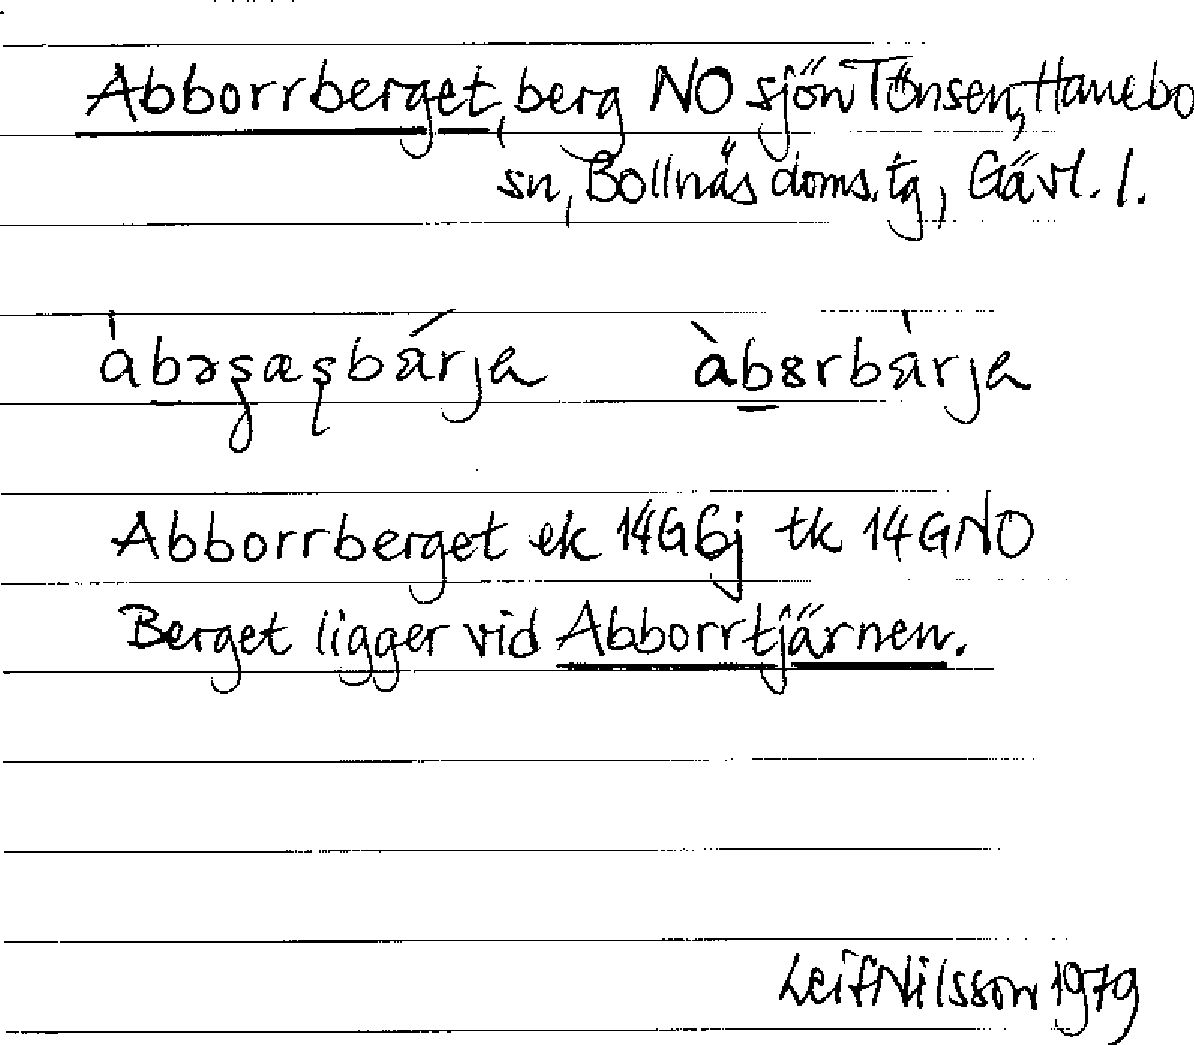 Abborrberget, berg NO sjön Tönsen, Hanebo
sn, Bollnäs doms.tg, Gävl. l.
Abborrberget ek 14G6j tk 14GNO
Berget ligger vid Abborrtjärnen.
Leif Nilsson 1979